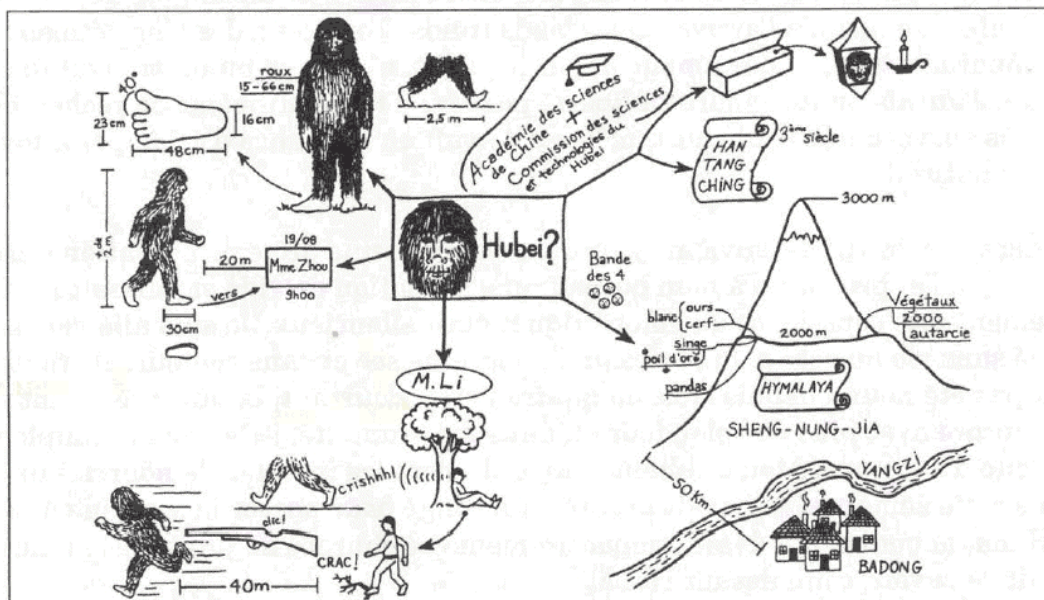 40°
23cm
48cm
16cm
roux
15-66cm
2,5m
Académie des sciences
de Chine +
Commission des sciences
et technologies du
Hubei
3ème siècle
HAN
TANG
CHING
3000m
+ de
2m
20m
vers
30cm
19/08
Mme Zhou
9h00
Hubei?
Bande
des 4
blanc
ours
cerf
singe
poil d'oré
pandas
2000m
Végétaux
2000
autarcie
HYMALAYA
SHENG-NUNG-JIA
M. Li
crishhh!
clic!
CRAC!
40m
50Km
YANGZI
BADONG